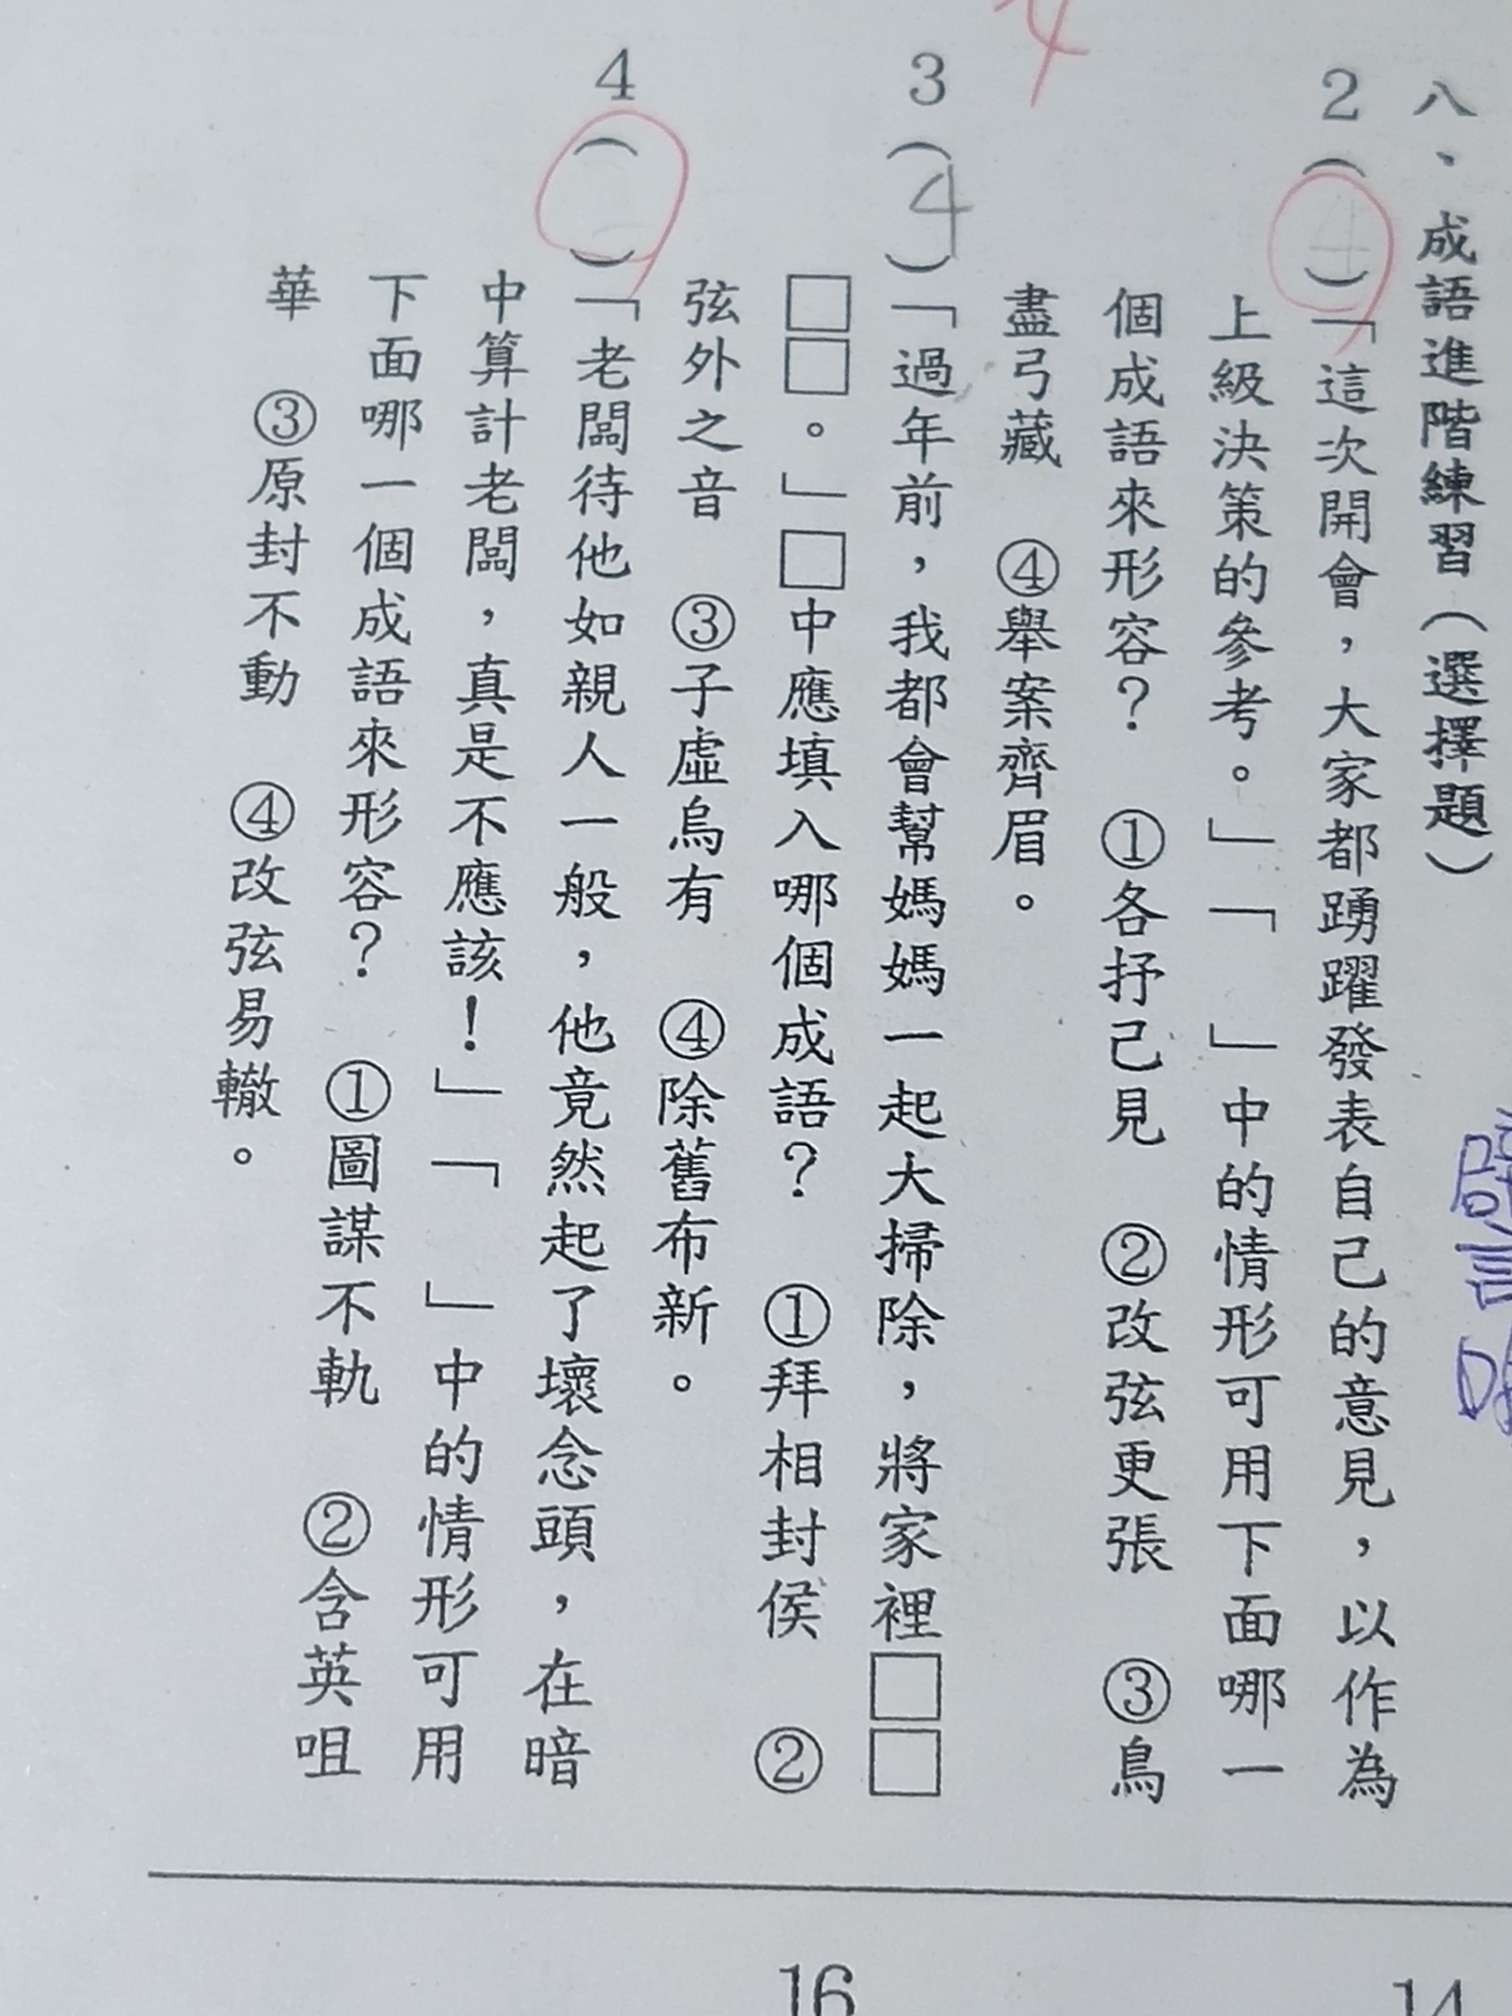 八、成語進階練習（選擇題）
2（4）「這次開會，大家都踴躍發表自己的意見，以作為
上級決策的參考。」「　」中的情形可用下面哪一
個成語來形容？　①各抒己見　②改弦更張　③鳥
盡弓藏　④舉案齊眉。
4
3（4）「過年前，我都會幫媽媽一起大掃除，將家裡□□
□□。」□中應填入哪個成語？　①拜相封侯　②
弦外之音　③子虛烏有　④除舊布新。
4（　）「老闆待他如親人一般，他竟然起了壞念頭，在暗
中算計老闆，真是不應該！」「　」中的情形可用
下面哪一個成語來形容？　①圖謀不軌　②含英咀
華　③原封不動　④改弦易轍。
16
14